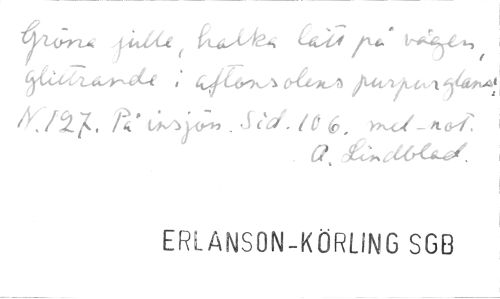 Gröna julle, halka lätt på vågen,
glittrande i aftonsolens purpurglans!
N. 127. På insjön. Sid. 106. mel-not.
A. Lindblad.
ERLANSON-KÖRLING SGB